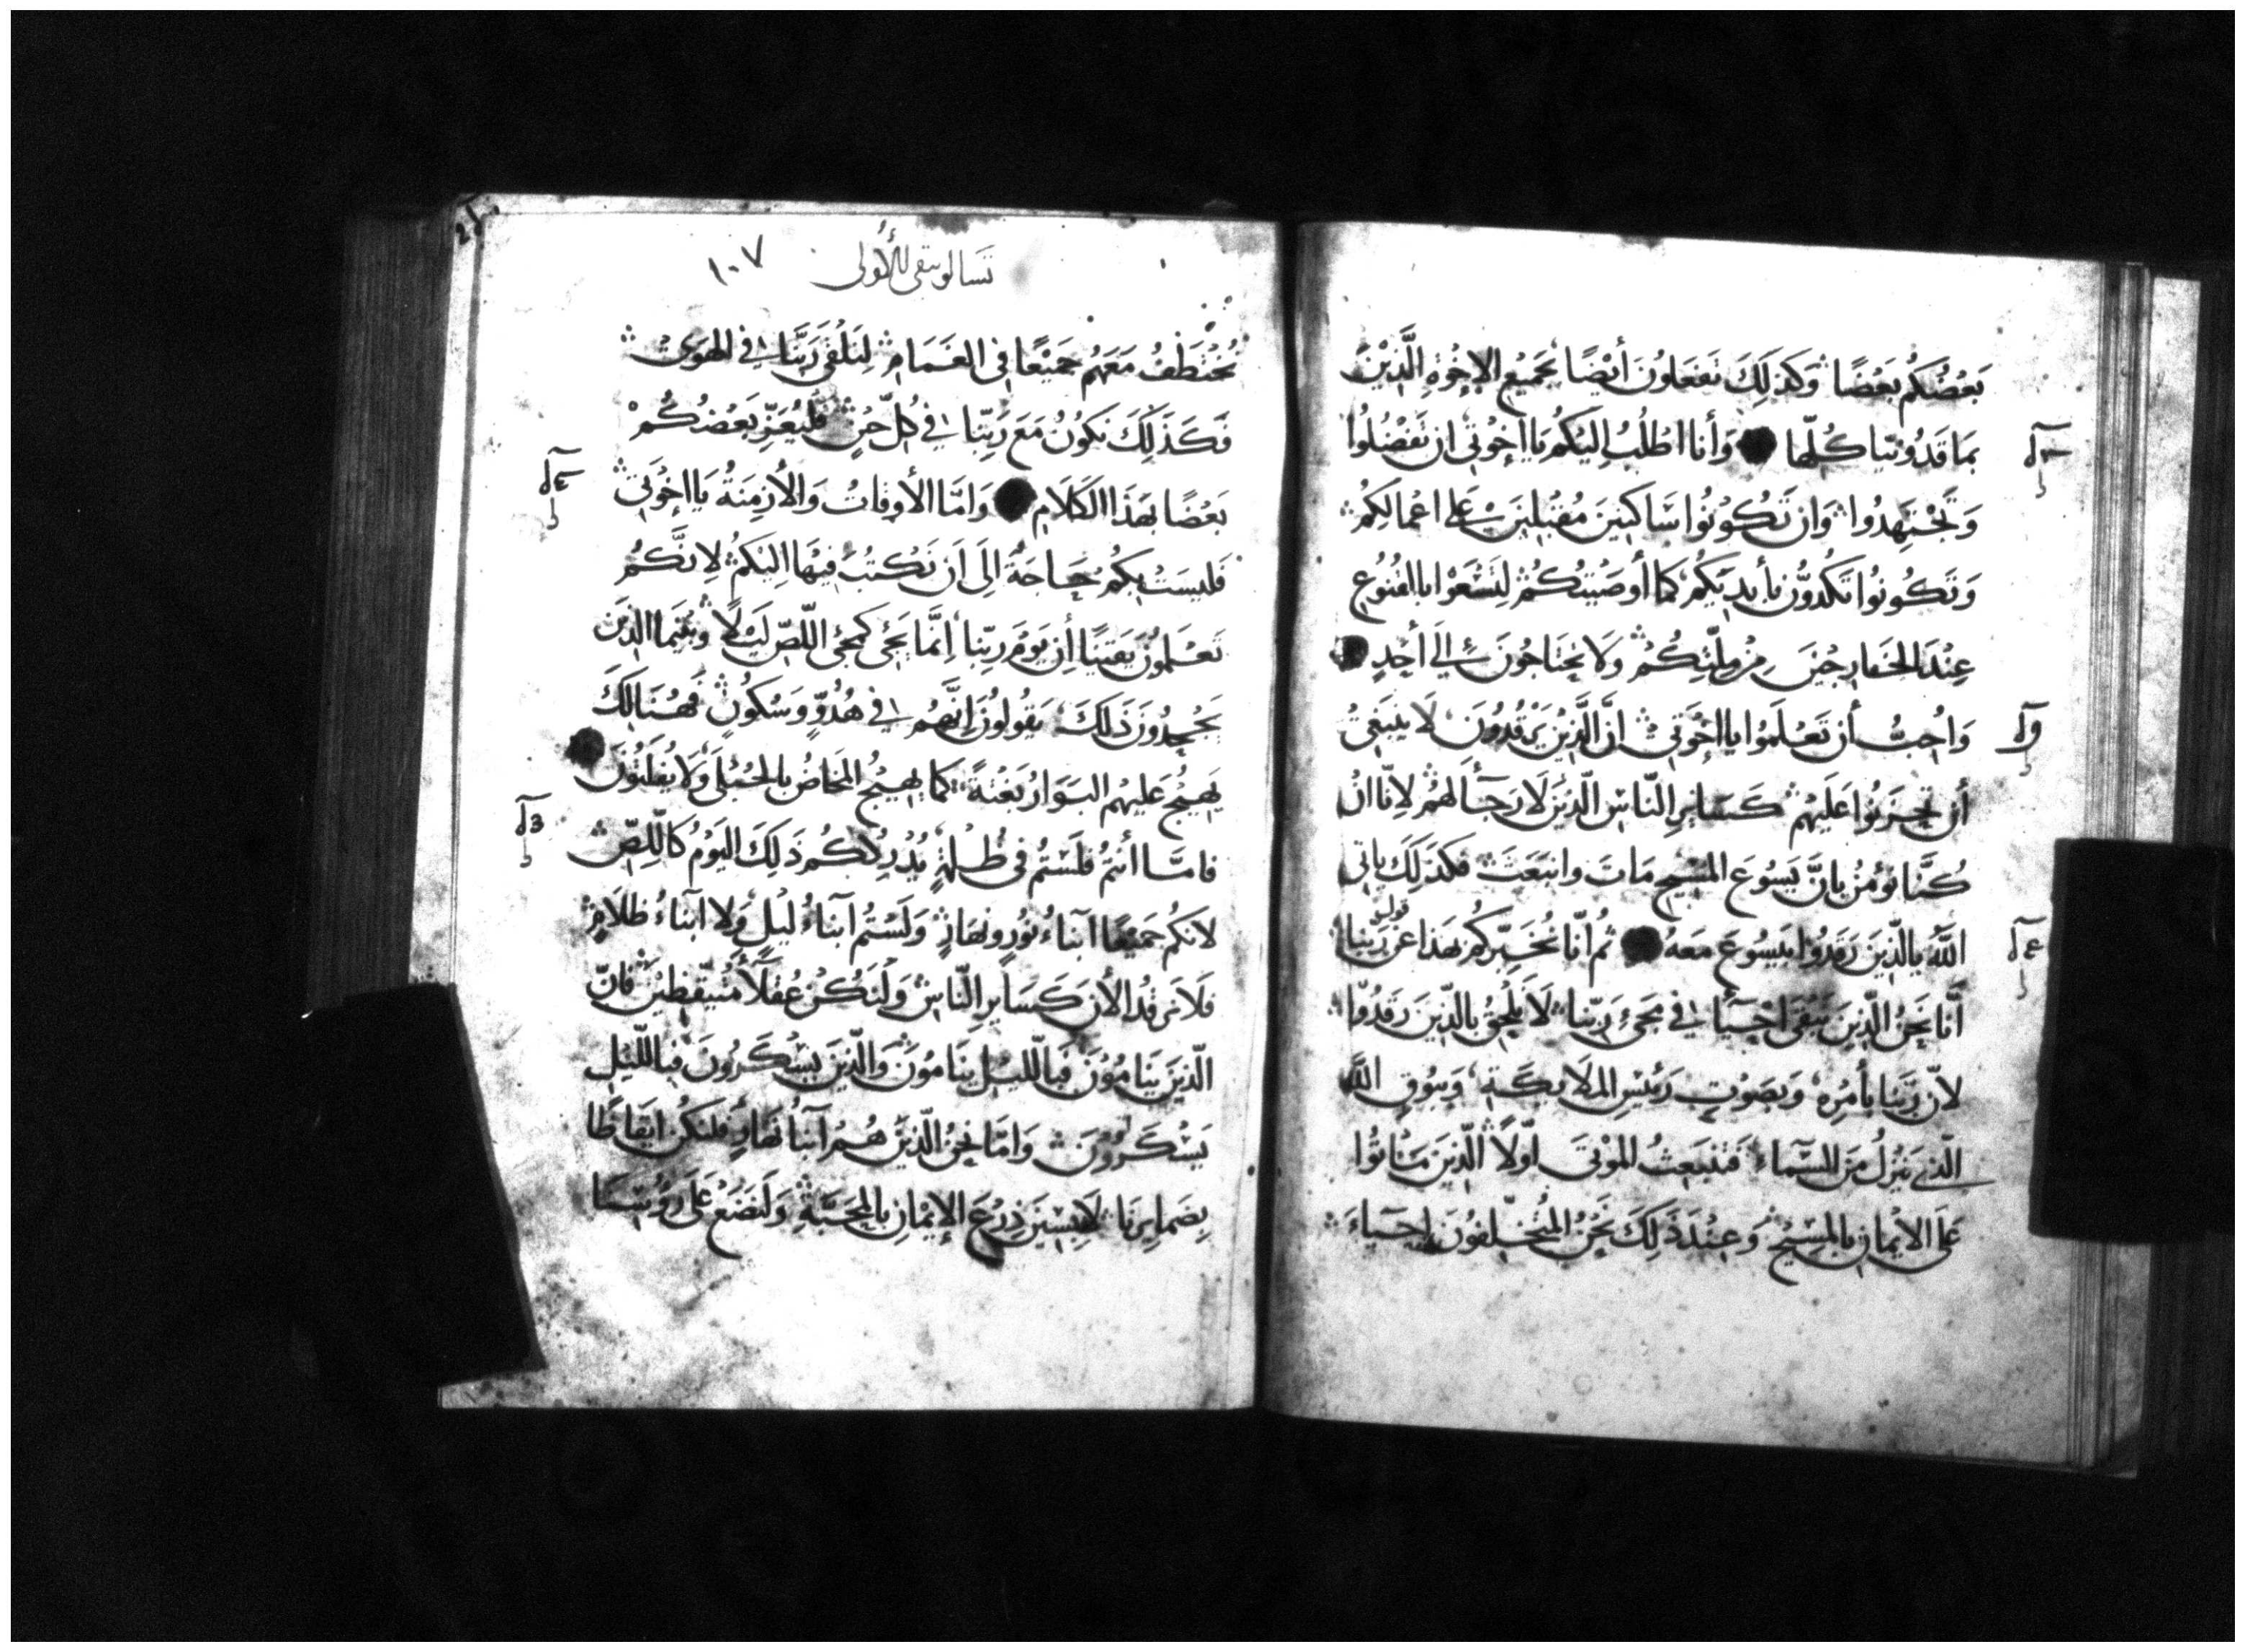 بَعْضُكُم بَعْضًا وَكَذلِكَ تَفعَلونَ أَيْضًا بجَمِيعِ الإخْوَةِ الَّذِيْنَ
بمَاقَدُونيَا كُلّها وَأنا اطْلُبُ اِليْكُم يَا إخْوَتي ان تَفضُلُوا
وَتجْتهِدُوا وَان تَكُوْنُوا سَاكِنِينَ مُقبِلِينَ عَلى اعْمالِكُمْ
وَتَكُونُوا تَكدُّونَ بأيدِيَكُم كَما أوصَيْتكُمْ لِتَسْعَوْا باالقنُوعِ
عِنْدَ الخَارِجِيْنَ مِنْ مِلّتِكُمْ وَلَا تحْتَاجُونَ إلَى أَحَدٍ
وَاُحِبُّ أَن تَعْلَمُوا يا إخْوَتي انَّ الَّذِيْنَ يَرْقُدُوْنَ لَا يَنبَغِيْ
أَن تَحْزَنُوا عَلَيْهِمْ كَسَايرِ النّاسِ الّذِينَ لا رَجَآ لَهُمْ لِانّا انْ
كُنَّا نُؤمنُ بانَّ يَسُوعَ المسِيحِ مَاتَ وانبَعَثَ فكذَلِكَ ياتي
اللهُ بالّذِينَ رَقَدُوا بيَسُوعَ مَعهُ ثُم انّا نُخَبِّرُكُم بهَذا عَن قول رَبِّنَا
أنَّا نَحْنُ الّذِينَ نَبْقَى اَحْيَآءً في مَجِيءِ رَبِّنَا لَا نَلْحِقُ بالّذِينَ رَقَدُوا
لانّ رَبَّنا بأمرِهِ وَبصَوْتِ رَئيسِ المَلَايكَةِ وَببُوقِ اللهِ
الّذِي يَنزِلُ مِنَ السَّمَاءِ فَتنبَعِثُ الموْتَى اوّلًا الّذِينَ مَاتُوا
عَلَى الايْمَانِ بالمسِيْحِ وَعِنْدَ ذَلِكَ نَحْنُ المُتخَلِّفُونَ احيَاءَ
تَسالونيقى الأولى ١٠٧
نُخْتَطَفُ مَعَهُم جَمِيْعًا في الغَمَامِ لِنَلْقَى رَبَّنَا في الهَوَى
فَكَذَلِكَ نَكُونُ مَعَ رَبِّنا في كُلِّ حِيْنٍ فَلْيُعَزِّ بَعْضُكُمْ
بَعْضًا بهَذَا الكَلَامِ وَامَّا الأوقاتُ وَالأزمِنَةُ يَا إخْوَتي
فَليسَتْ بكُم حَاجَةٌ اِلَى اَن نَكتُبَ فيْهَا اِليْكُمْ لِانكُمْ
تَعْلَمُونَ يَقيْنًا أن يَوْمَ رَبِّنا اِنَّما يَجِيُ كمَجِي اللّصِّ لَيْلًا وَبَيْنَمَا الذِينَ
يَجْحِدُونَ ذَلِكَ يَقُولونَ اِنَّهُم في هُدُوٍّ وَسُكُونٍ فَهُنَالِكَ
يَهِيْجُ عَلَيْهم البَوَارُ بَغْتَةً كَما يَهِيْجُ المخاضُ بالحُبْلَى وَلَا يَفلَتُونَ
فامَّا أنتُمْ فلَسْتُم في ظُلْمَةٍ يُدْرِككُم ذَلِكَ اليَوْمُ كَاللِّصِّ
لانكُم جَمِيْعًا ابْناءُ نُورٍ وَنهَارٍ وَلَسْتُم ابْنَاءُ لَيْلٍ وَلا ابْناءُ ظَلَامٍ
فلَا نَرقُد الأن كَسَايرِ النّاسِ وَلنَكُنْ عُقلَاءَ مُتَيَقظِيْنَ فانّ
الّذِينَ يَنَامُوْنَ فَبالليْلِ ينَامُوْنَ وَالّذِينَ يَسْكَرُونَ فبالليْلِ
يَسْكَرُوْنَ وَامَّا نَحْنُ الّذِيْنَ هُمْ ابنآءُ نَهَارٍ فلنَكُن ايقاظًا
بضَمايرِنَا لابِسِيْنَ دِرْعَ الإيْمَانِ بالمحَبَّةِ وَلنَضَعْ عَلَى رُؤسِنَا